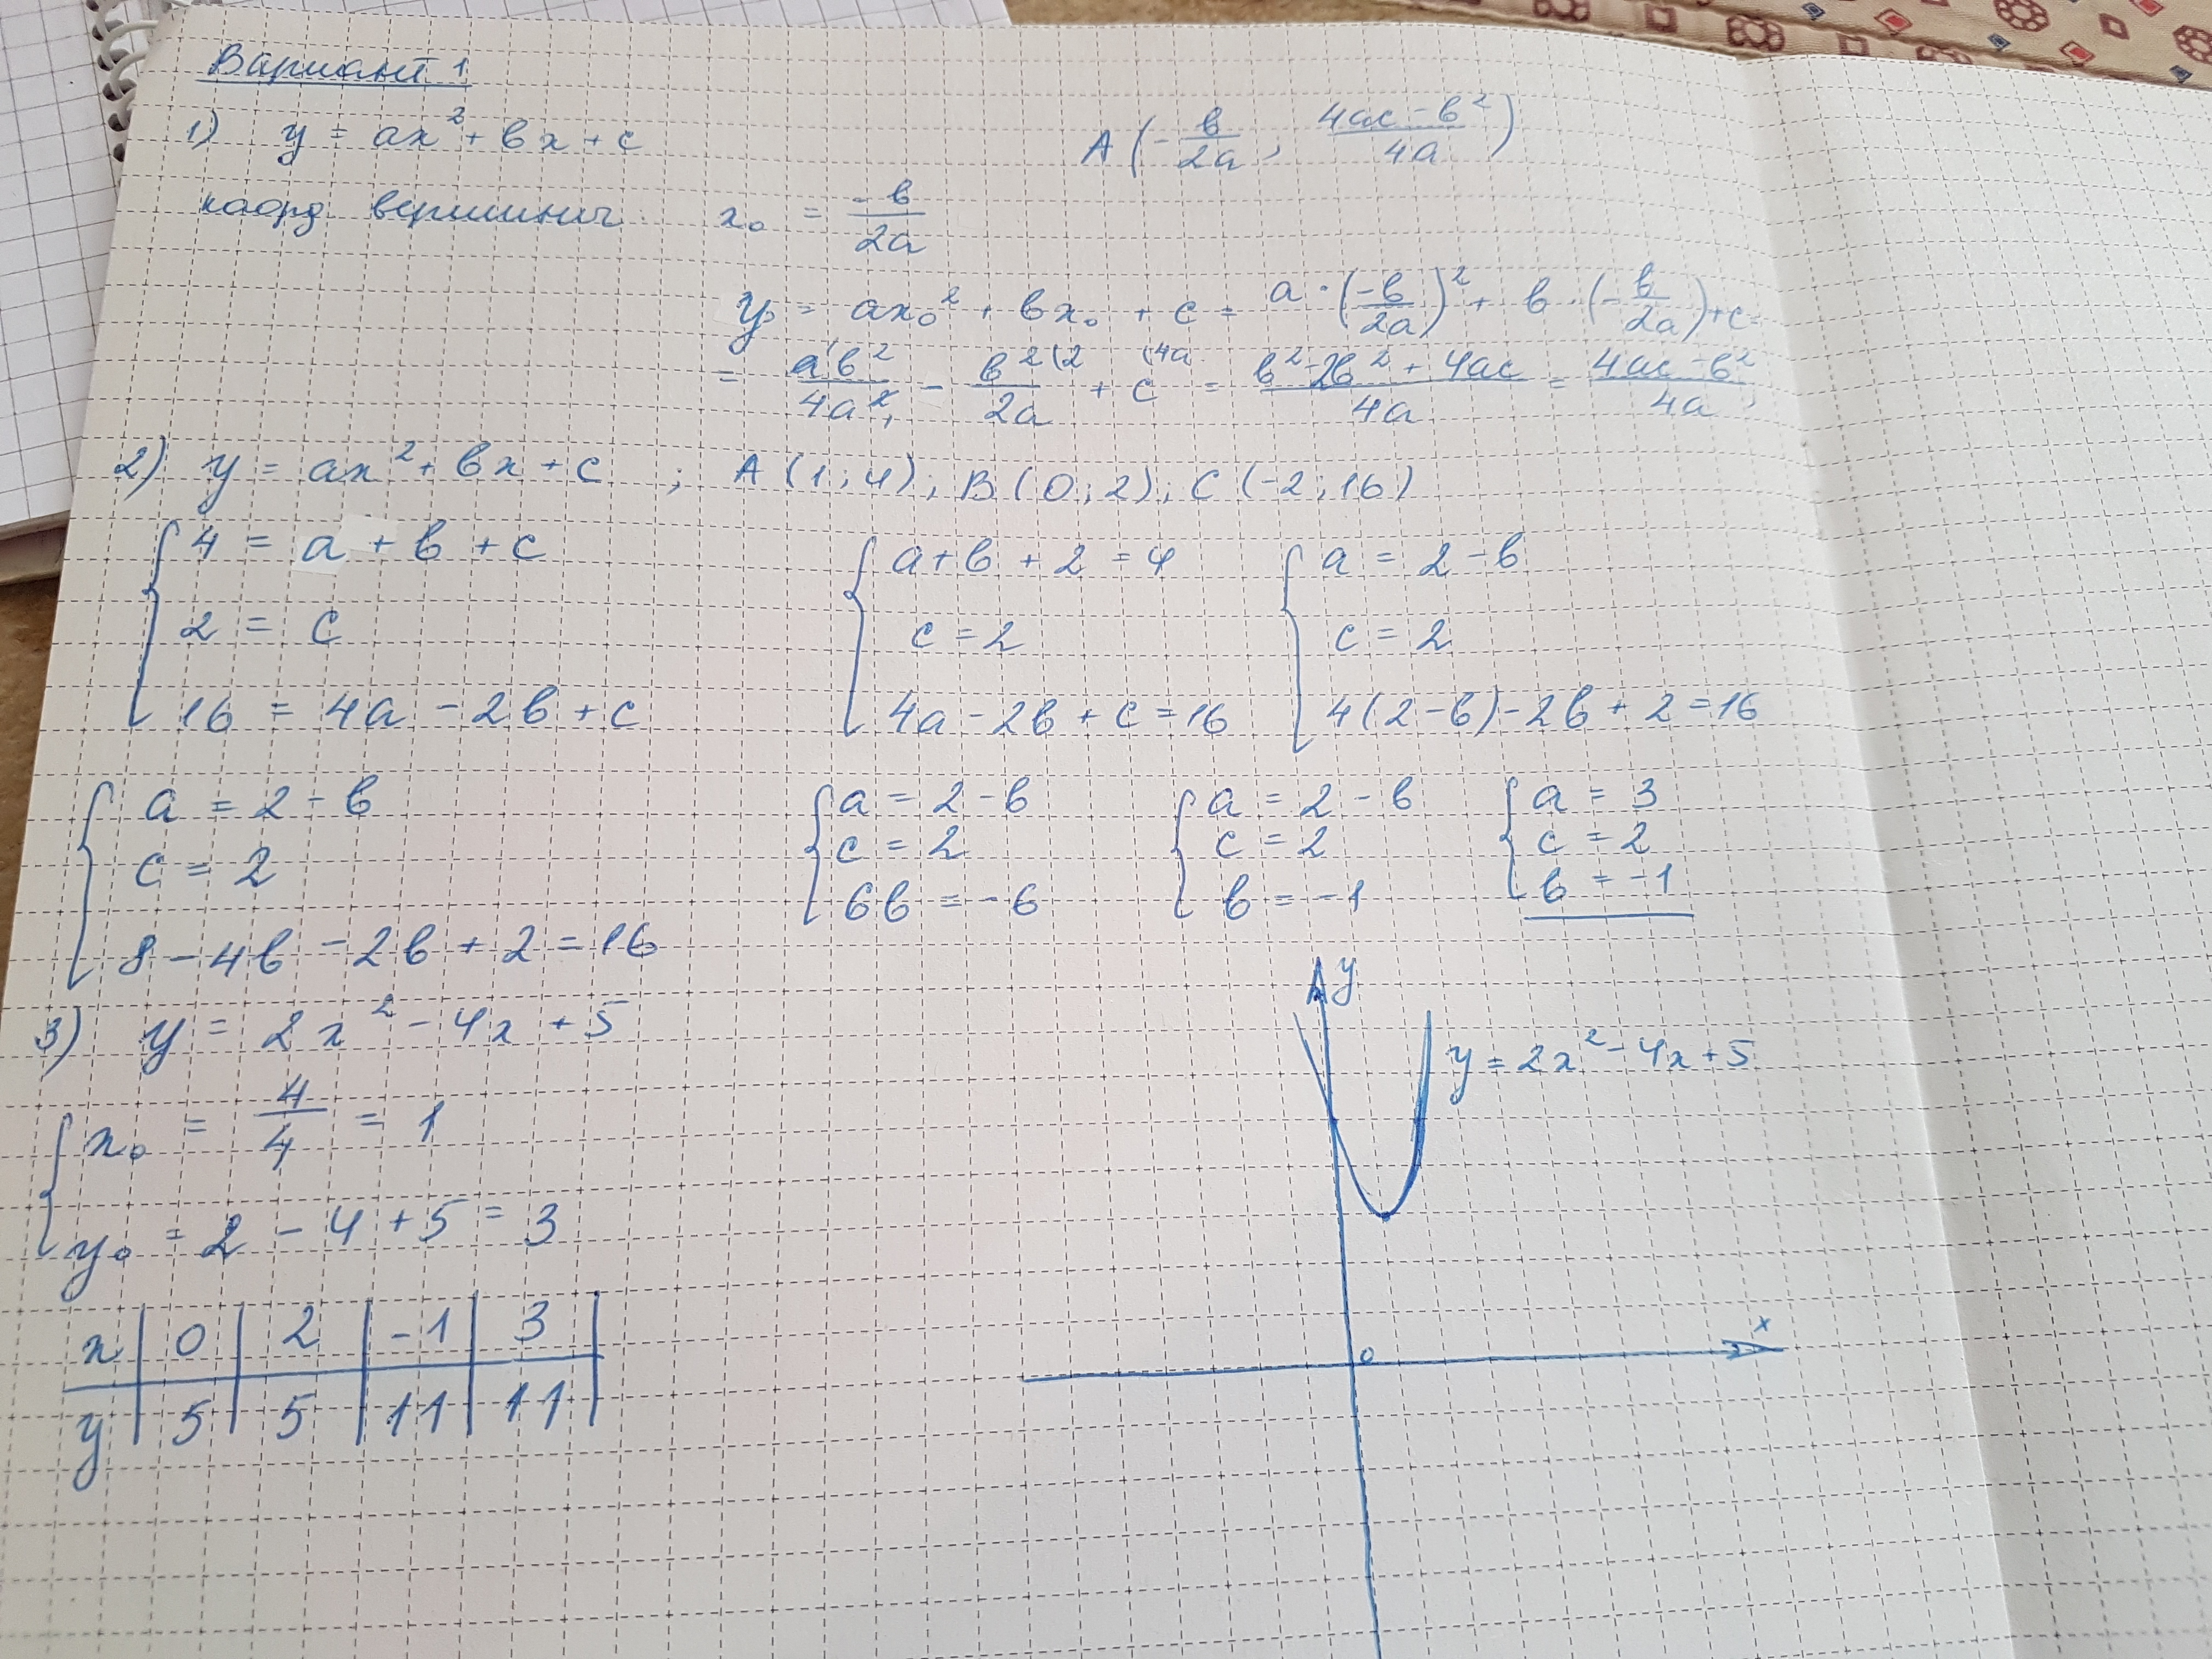 Вариант 1
1) y = ax² + bx + c
A(-b/2a, (4ac-b²)/4a)
коорд вершины x₀ = -b/2a
y₀ = ax₀² + bx₀ + c = a·(-b/2a)² + b·(-b/2a)+c=
= ab²/4a² - b²(2/2a + c(4a = (b²-2b²+4ac)/4a = (4ac-b²)/4a;
2) y = ax² + bx + c ; A(1;4); B(0;2); C(-2;16)
{4 = a + b + c {a+b+2=4 {a = 2-b
2 = c c=2 c=2
16 = 4a - 2b + c 4a-2b+c=16 4(2-b)-2b+2=16
{a = 2-b {a = 2-b {a = 2-b {a = 3
c = 2 c = 2 c = 2 c = 2
8-4b-2b+2=16 6b = -6 b = -1 b = -1
3) y = 2x² - 4x + 5
{x₀ = 4/4 = 1
y₀ = 2 - 4 + 5 = 3
x | 0 | 2 | -1 | 3 |
y | 5 | 5 | 11 | 11 |
y
y = 2x² - 4x + 5
x
0